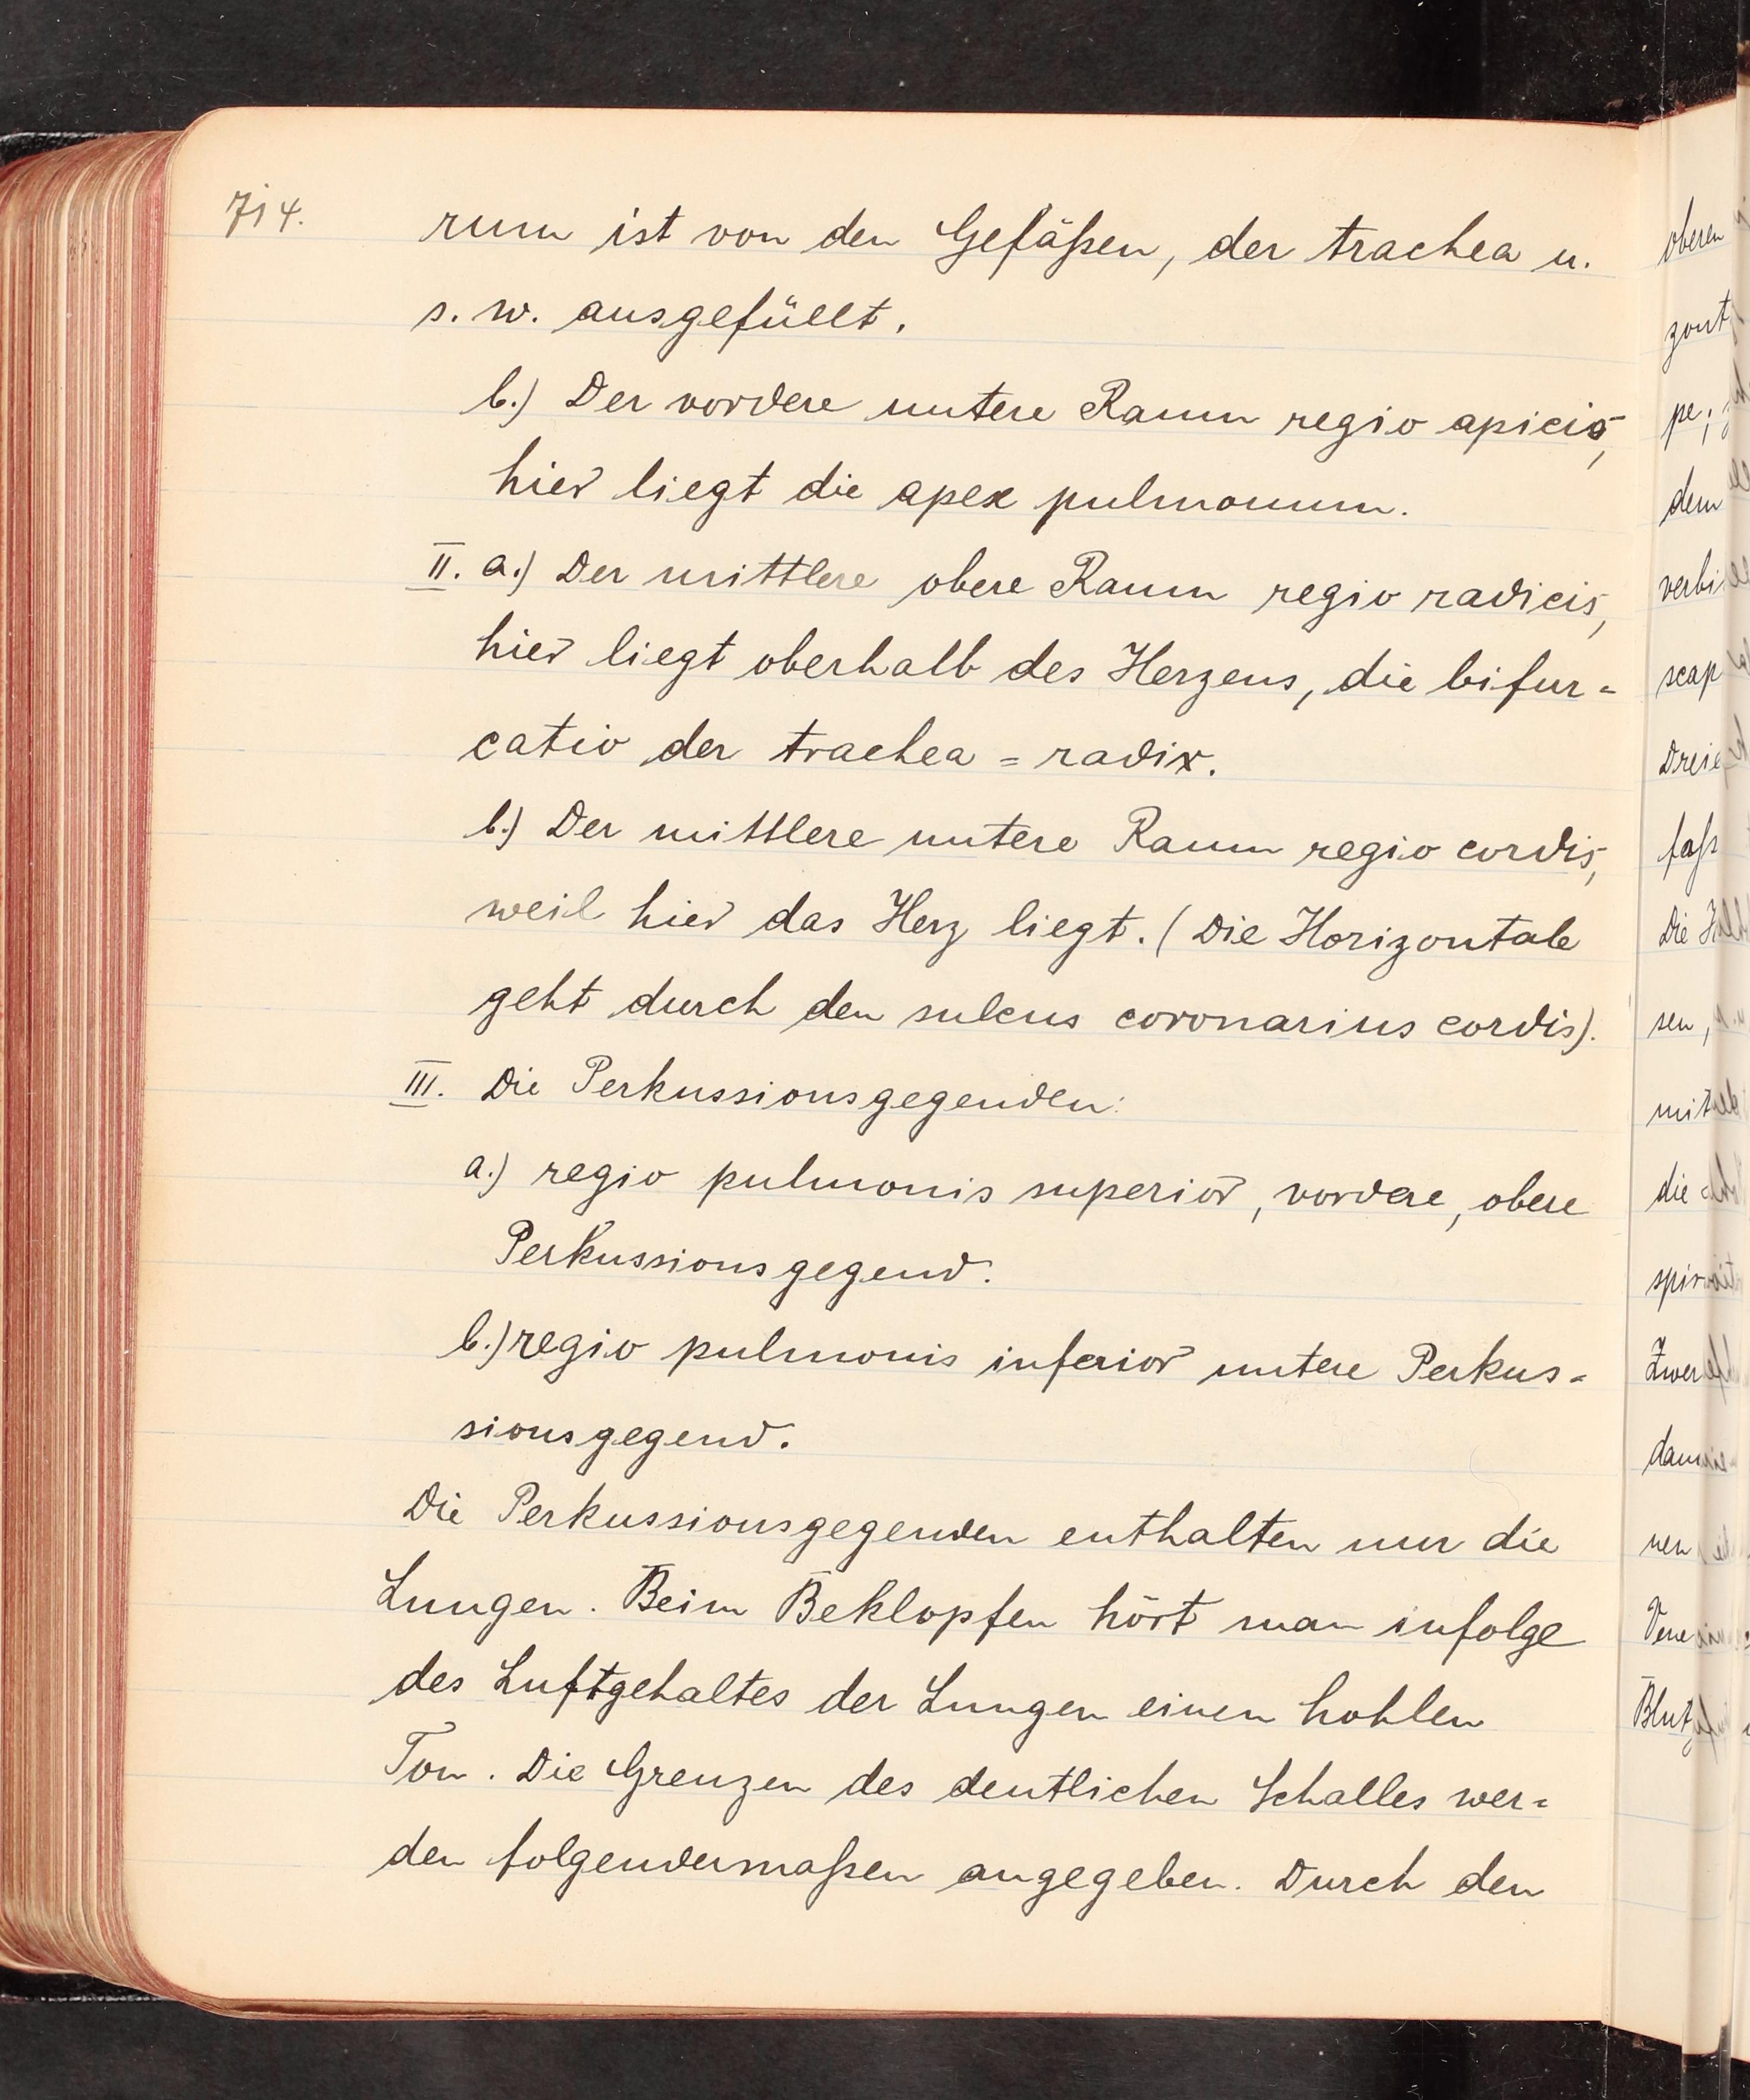 714.
rum ist von den Gefäßen, der trachea u.
s. w. ausgefüllt.
b.) Der vordere untere Raum regio apicis,
hier liegt die apex pulmonum.
II. a.) Der mittlere obere Raum regio radicis,
hier liegt oberhalb des Herzens, die bifur=
catio der trachea = radix.
b.) Der mittlere untere Raum regio cordis,
weil hier das Herz liegt. (Die Horizontale
geht durch den sulcus coronarius cordis).
III. Die Perkussionsgegenden:
a.) regio pulmonis superior, vordere, obere
Perkussionsgegend.
b.) regio pulmonis inferior untere Perkus=
sionsgegend.
Die Perkussionsgegenden enthalten nur die
Lungen. Beim Beklopfen hört man infolge
des Luftgehaltes der Lungen einen hohlen
Ton. Die Grenzen des deutlichen Schalles wer=
den folgendermaßen angegeben. Durch den
oberen
zont
pe;
dem
verbi
scap
Drei
faß
Die H
sen,
mit
die
spir
Zwer
dam
nen
Vene
Blut